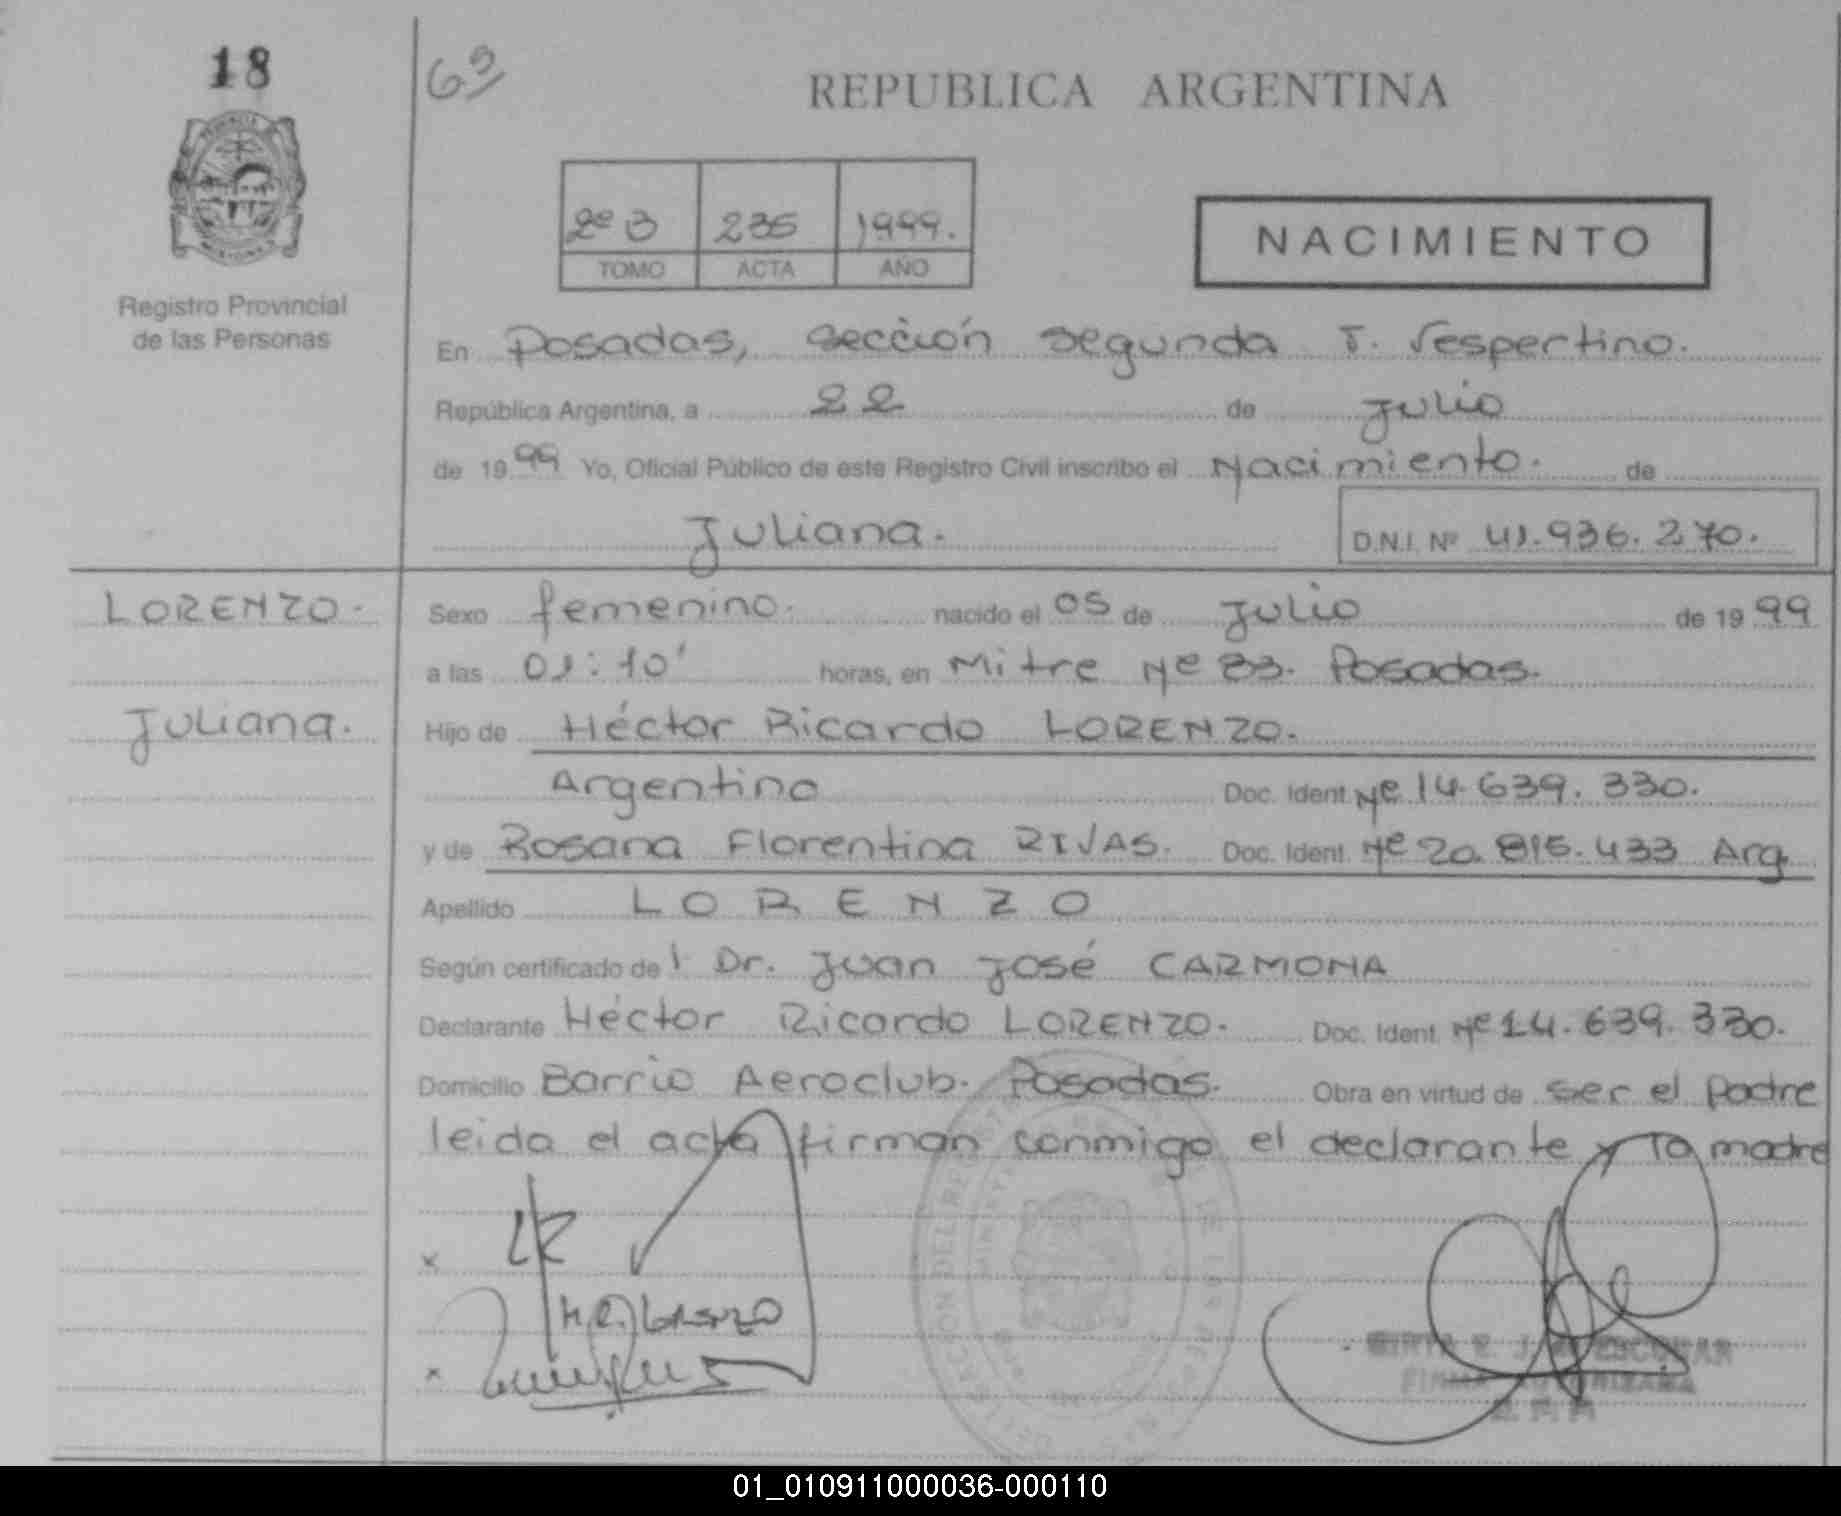 18
63
REPUBLICA ARGENTINA
2º 3 235 1999.
TOMO ACTA AÑO
NACIMIENTO
Registro Provincial
de las Personas
En Posadas, sección segunda T. Vespertino.
República Argentina, a 22 de Julio
de 1999 Yo, Oficial Público de este Registro Civil inscribo el Nacimiento. de
Juliana. D.N.I. Nº 41.936.270.
LORENZO. Sexo femenino. nacido el 05 de Julio de 1999
a las 01:10' horas, en Mitre Nº 83. Posadas.
Juliana. Hijo de Héctor Ricardo LORENZO.
Argentino Doc. Ident. Nº 14.639.330.
y de Rosana Florentina RIVAS. Doc. Ident. Nº 20.815.433 Arg.
Apellido LORENZO
Según certificado de l Dr. Juan José CARMONA
Declarante Héctor Ricardo LORENZO. Doc. Ident. Nº 14.639.330.
Domicilio Barrio Aeroclub. Posadas. Obra en virtud de ser el padre
leida el acta firman conmigo el declarante y la madre
x
x
01_010911000036-000110